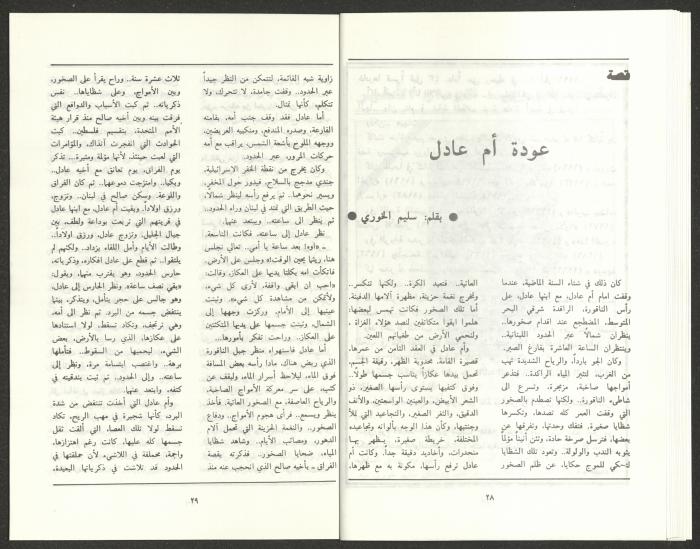 قصة
عودة أم عادل
● بقلم: سليم الخوري ●
كان ذلك في شتاء السنة الماضية، عندما
وقفت امام أم عادل، مع ابنها عادل، على
رأس الناقورة، الرافدة شرقي البحر
المتوسط، المضطجع عند اقدام صخورها..
ينظران شمالاً عبر الحدود اللبنانية..
وينتظران الساعة العاشرة بفارغ الصبر.
وكان الجو بارداً، والرياح الشديدة تهب
من الغرب، لتثير المياه الراكدة.. فتدفع
أمواجها صاخبة، مزمجرة، وتسرع الى
شاطىء الناقورة.. ولكنها تصطدم بالصخور
التي وقفت العمر كله تصدها، وتكسرها
شظايا صغيرة، فتفك وحدتها، وتفرقها عن
بعضها، فترسل صرخة حادة، وتئن أنيناً مؤلماً
يشوبه الندب والولولة.. وتعود تلك الشظايا
لتحكي للموج حكايا، عن ظلم الصخور
العاتية.. فتعيد الكرة.. ولكنها تنكسر..
وتخرج نغمة حزينة، مظهرة آلامها الدفينة.
أما تلك الصخور فكانت تهمس لبعضها:
هلموا ابقوا متكاتفين لنصد هؤلاء الغزاة ،
ولنحمي الأرض من طغيانهم اللعين.
وأم عادل في العقد الثامن من عمرها.
قصيرة القامة، محدوبة الظهر، رقيقة الجسم.
تحمل بيدها عكازاً يناسب جسمها طولاً.
وفوق كتفيها يستوي رأسها الصغير، ذو
الشعر الأبيض، والعينين الواسعتين، والأنف
الدقيق، والثغر الصغير، والتجاعيد التي تملأ
وجنتيها، وكأن هذا الوجه بألوانه وتجاعيده
المختلفة، خريطة صغيرة، يظهر بها
منحدرات، وأخاديد دقيقة جداً. وكانت أم
عادل ترفع رأسها، مكونة به مع ظهرها،
٢٨
زاوية شبه القائمة، لتتمكن من النظر جيداً
عبر الحدود.. وقفت جامدة، لا تتحرك، ولا
تتكلم، كأنها تمثال.
أما عادل فقد وقف جنب أمه، بقامته
الفارعة، وصدره المندفع، ومنكبيه العريضين،
ووجهه الملوح بأشعة الشمس، يراقب مع أمه
حركات المرور، عبر الحدود.
وكان يخرج من نقطة الخفر الإسرائيلية،
جندي مدجج بالسلاح، فيدور حول المخفر،
ويسير نحوهما.. ثم يرفع رأسه لينظر شمالا،
حيث الطريق التي تمتد في لبنان وراء الحدود..
ثم ينظر الى ساعته.. ويبتعد عنهما.
نظر عادل إلى ساعته، فكانت التاسعة.
ـ «أوه! بعد ساعة يا أمي.. تعالي نجلس
هنا، ريثما يحين الوقت!» وجلس على الأرض.
فاتكأت أمه بكلتا يديها على العكاز، وقالت:
«أحب ان ابقى واقفة، لأرى كل شيء،
ولأتمكن من مشاهدة كل شيء». وثبتت
عينيها إلى الأمام، وركزت وجهها إلى
الشمال، وثبتت جسمها على يديها المتكئتين
على العكاز.. وراحت تفكر بأمورها...
أما عادل فاستهواه منظر جبل الناقورة
الذي ربض هناك، مادا رأسه بعض المسافة
فوق الماء، ليلاحظ أسرار الماء، وليقف عن
كثب، على سر معركة الأمواج الصاخبة،
والرياح العاصفة، مع الصخور العاتية. فأخذ
ينظر ويسمع.. فرأى هجوم الأمواج.. ودفاع
الصخور.. والنغمة الحزينة التي تحمل آلام
الدهور، ومصائب الأيام.. وشاهد شظايا
المياه، ضحايا الصخور.. فذكرته بقصة
الفراق ـ بأخيه صالح الذي انحجب عنه منذ
ثلاث عشرة سنة.. وراح يقرأ على الصخور،
وبين الأمواج، وعلى شظاياها.. نفس
ذكرياته.. ثم كبت الأسباب والدوافع التي
فرقت بينه وبين أخيه صالح منذ قرار هيئة
الأمم المتحدة، بتقسيم فلسطين. كبت
الحوادث التي انفجرت آنذاك، والمؤامرات
التي لعبت حينئذ، لأنها مؤلمة ومثيرة... تذكر
يوم الفراق، يوم تعانق مع أخيه عادل..
وبكيا.. وامتزجت دموعهما.. ثم كان الفراق
واللوعة. وسكن صالح في لبنان.. وتزوج،
ورزق اولاداً.. وبقيت أم عادل، مع ابنها عادل
في قريتهم التي تربعت بوداعة ولطف، بين
جبال الجليل، وتزوج عادل، ورزق اولاداً..
وطالت الأيام وأمل اللقاء يزداد.. ولكنهم لم
يلتقوا.. ثم قطع على عادل افكاره، وذكرياته،
حارس الحدود، وهو يقترب منهما، ويقول:
«بقي نصف ساعة». ونظر الحارس إلى عادل،
وهو جالس على حجر يتأمل، ويتذكر، بينما
ينتفض جسمه من البرد. ثم نظر الى أمه،
وهي ترتجف، وتكاد تسقط، لولا استنادها
على عكازها، الذي رسا بالأرض، بعض
الشيء، ليحميها من السقوط.. فتأملها
برهة.. واغتصب ابتسامة مرة.. ونظر إلى
ساعته.. وإلى الحدود.. ثم ثبت بندقيته في
كتفه، وابتعد عنها.
وأم عادل التي أخذت تنتفض من شدة
البرد، كأنها شجيرة في مهب الريح، تكاد
تسقط لولا تلك العصا، التي ألقت ثقل
جسمها كله عليها، كانت رغم اهتزازها،
واجمة، محملقة في اللاشيء، لأن حملقتها في
الحدود قد تلاشت في ذكرياتها البعيدة،
٢٩